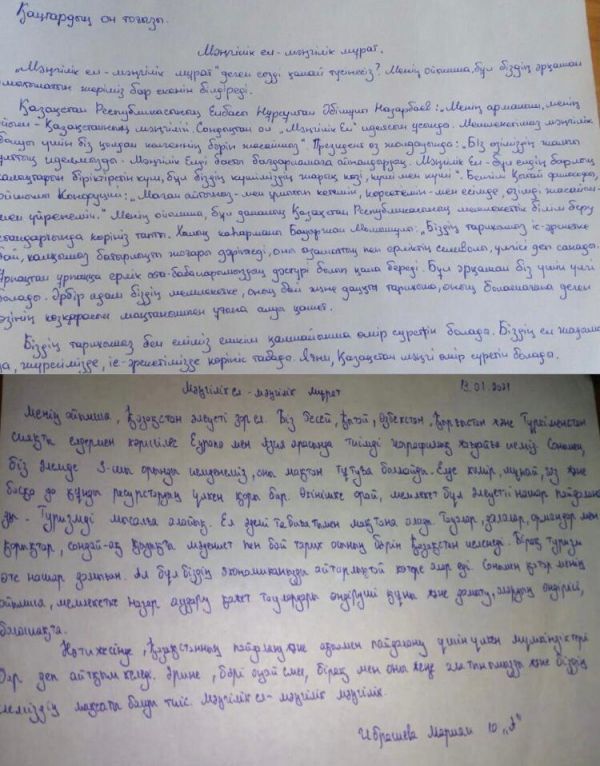 Қаңтардың он тоғызы.
Мәңгілік ел - мәңгілік мұрат.
"Мәңгілік ел - мәңгілік мұрат" деген сөзді қалай түсінесіз? Менің ойымша, бұл біздің әрқашан
мақтаныш жеріміз бар екенін білдіреді.
Қазақстан Республикасының Елбасы Нұрсұлтан Әбішұлы Назарбаев: "Менің арманым, менің
ойым - Қазақстанның мәңгілігі. Сондықтан ол "Мәңгілік Ел" идеясын ұсынды. Мемлекетіміз мәңгілік
болуы үшін біз қолдан келгеннің бәрін жасаймыз" Президент өз жолдауында: "Біз өзіміздің жалпы
ұлттық идеямызды - Мәңгілік Елді басты бағдарымызға айналдырдық. Мәңгілік Ел - бұл елдің барлық
халықтарын біріктіретін күш, бұл біздің күшіміздің жарық көзі, күші мен күші". Белгілі Қытай философы,
ойшылы Конфуций: "Маған айтыңыз - мен ұмытып кетемін, көрсетемін - мен есімде, өзімді жасайын -
мен үйренемін." Менің ойымша, бұл даналық Қазақстан Республикасының мемлекеттік білім беру
стандартында көрініс тапты. Халық қаһарманы Бауыржан Момышұлы: "Біздің тарихымыз іс-әрекетке
бай, халқымыз батырлықты жоғары дәріптейді, оны азаматтық пен ерліктің символы, үлгісі деп санады.
Ұрпақтан ұрпаққа ерлік ата-бабаларымыздың дәстүрі болып қала береді. Бұл әрқашан біз үшін үлгі
болады. Әрбір адам біздің мемлекетке, оның бай және даңқты тарихына, оның болашағына деген
өзінің көзқарасын мақтанышпен ұстана алуы қажет.
Біздің тарихымыз бен еліміз ешкім қалмайынша өмір сүретін болады. Біздің ел жадымыз-
да, жүрегімізде, іс-әрекетімізде көрініс табады. Яғни, Қазақстан мәңгі өмір сүретін болады.
Мәңгілік ел - мәңгілік мұрат 19.01.2021
Менің ойымша, Қазақстан әлеуеті зор ел. Біз Ресей, Қытай, Өзбекстан, Қырғызстан және Түркіменстан
сияқты елдермен көршілес Еуропа мен Азия арасында тиімді географиялық жағдайға иеміз. Сонымен,
біз әлемде 9-шы орынды иемденеміз, оны мақтан тұтуға болады. Елде көмір, мұнай, газ және
басқа да құнды ресурстардың үлкен қоры бар. Өкінішке орай, мемлекет бұл әлеуетті нашар пайдалана-
ды. Туризмді мысалға алайық. Ел әдемі табиғатымен мақтана алады. Таулар, далалар, ормандар мен
қорықтар, сондай-ақ қызықты мәдениет пен бай тарих осының бәрін Қазақстан иеленеді. Бірақ туризм
өте нашар дамыған. Ал бұл біздің экономикамызды айтарлықтай көтере алар еді. Сонымен қатар менің
ойымша, мемлекетке назар аудару қажет тауарларды өндіруші құны және дамыту, олардың өндірісі,
болашақта.
Нәтижесінде, Қазақстанның пайдалану және ақылмен пайдалану үшін үлкен мүмкіндіктері
бар деп айтқым келеді. Әрине, бәрі оңай емес, бірақ мен оны жеңе алатынымызды және біздің
еліміздің мақсаты болуы тиіс. Мәңгілік ел - мәңгілік мәңгілік.
Ибрашева Мариам 10 "А"